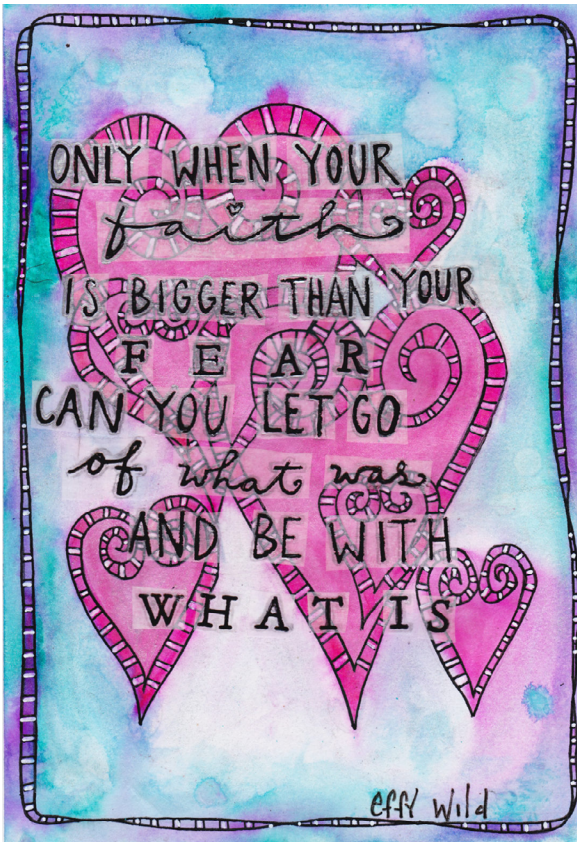 ONLY WHEN YOUR
faith
IS BIGGER THAN YOUR
FEAR
CAN YOU LET GO
of what was
AND BE WITH
WHAT IS
effy wild